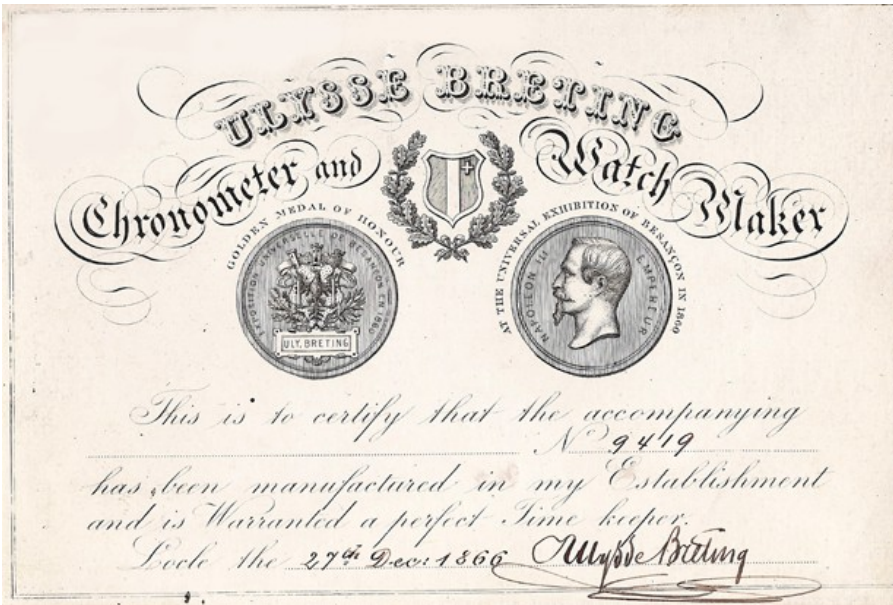 ULYSSE BRETING
Chronometer and Watch Maker
GOLDEN MEDAL OF HONOUR
EXPOSITION UNIVERSELLE DE BESANÇON EN 1860
ULY. BRETING
AT THE UNIVERSAL EXHIBITION OF BESANÇON IN 1860
NAPOLEON III EMPEREUR
This is to certify that the accompanying
Nº 9419
has been manufactured in my Establishment
and is Warranted a perfect Time keeper.
Locle the 27th Dec: 1866 Ulysse Breting